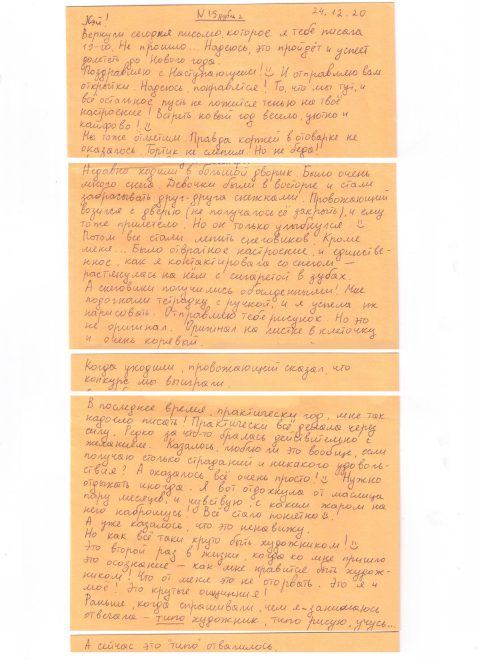 Хэй! N°15 публ 2 24.12.20
Вернули сегодня письмо, которое я тебе писала
19-го. Не прошло... Надеюсь, это пройдёт и успеет
долететь до Нового года.
Поздравляю с Наступающим! И отправляю вам
открытки. Надеюсь, понравятся! То, что мы тут, и
всё остальное пусть не ложится тенью на твоё
настроение! Встреть новый год весело, уютно и
кайфово!
Мы тоже отметим. Правда коржей в отоварке не
оказалось. Тортик не слепим. Но не беда!!
Недавно ходили в большой дворик. Было очень
много снега. Девочки были в восторге и стали
забрасывать друг-друга снежками. Провожающий
возился с дверью (не получалось её закрыть), и ему
тоже прилетело. Но он только улыбнулся.
Потом все стали лепить снеговиков. Кроме
меня... Было отвратное настроение, и единствен-
ное, как я контактировала со снегом —
растянулась на нём с сигаретой в зубах.
А снеговики получились обалденными! Мне
подогнали тетрадку с ручкой, и я успела их
нарисовать. Отправляю тебе рисунок. Но это
не оригинал. Оригинал на листке в клеточку
и очень корявый.
Когда уходили, провожающий сказал, что
конкурс мы выиграли.
В последнее время, практически год, мне так
надоело писать! Практически всё делала через
силу. Редко за что-то бралась действительно с
желанием. Казалось, люблю ли это вообще, если
получаю столько страданий и никакого удоволь-
ствия? А оказалось, всё очень просто! Нужно
отдыхать иногда. Я вот отдохнула от маслица
пару месяцев и чувствую, с каким жаром на
него наброшусь! Всё стало понятно!
А уже казалось, что это ненавижу.
Но как всё таки круто быть художником!
Это второй раз в жизни, когда ко мне пришло
это осознание — как мне нравится быть худож-
ником! Что от меня это не оторвать. Это я и
моё! Это крутые ощущения!
Раньше, когда спрашивали, чем я занимаюсь
отвечала — типо художник, типо рисую, учусь...
А сейчас это "типо" отвалилось.